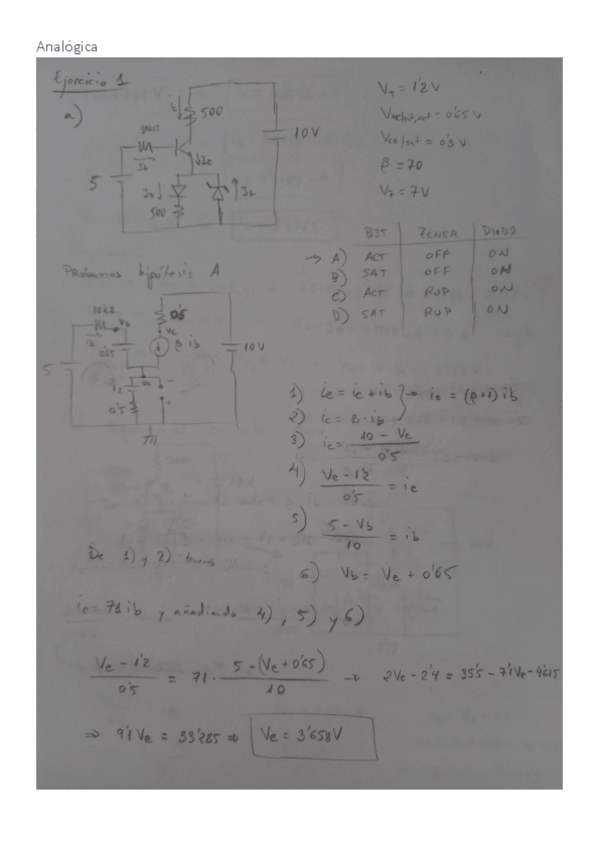 Analógica
Ejercicio 1
a)
500
10V
10kΩ
Ib
Ie
5
ID
Iz
500
Vγ = 1'2V
Vbe/act = 0'65 V
Vce/sat = 0'3 V
β = 70
Vz = 7V
BJT ZENER DIODO
→ A) ACT OFF ON
B) SAT OFF ON
C) ACT RUP ON
D) SAT RUP ON
Probamos hipótesis A
10kΩ
Vb
0'5
Vc
ib
0'65
β ib
10V
5
Ve
1'2
0'5
1) ie = ic + ib → ie = (β+1) ib
2) ic = β · ib
3) ic = (10 - Vc) / 0'5
4) (Ve - 1'2) / 0'5 = ie
5) (5 - Vb) / 10 = ib
6) Vb = Ve + 0'65
De 1) y 2)
ie = 71 ib y añadiendo 4), 5) y 6)
(Ve - 1'2) / 0'5 = 71 · (5 - (Ve + 0'65)) / 10 → 2Ve - 2'4 = 35'5 - 7'1Ve - 4'615
⇒ 9'1 Ve = 33'285 ⇒ Ve = 3'658V